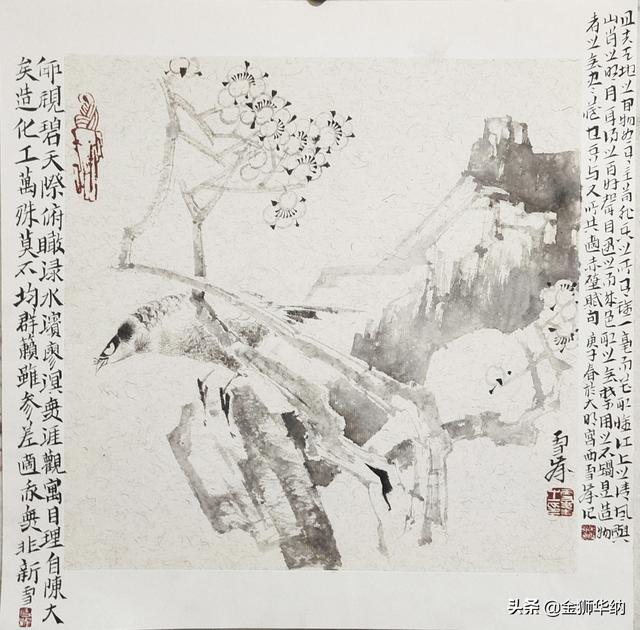 且夫天地之間物各有主苟非吾之所有雖一毫而莫取惟江上之清風與
山間之明月耳得之而為聲目遇之而成色取之無禁用之不竭是造物
者之無盡藏也吾與子所共適赤壁賦句 庚子春於大明宮西雪記
雪
仰視碧天際俯瞰淥水濱寥無涯觀寓目理自陳大
矣造化工萬殊莫不均群籟雖參差適我無非新 雪
头条 @金狮华纳